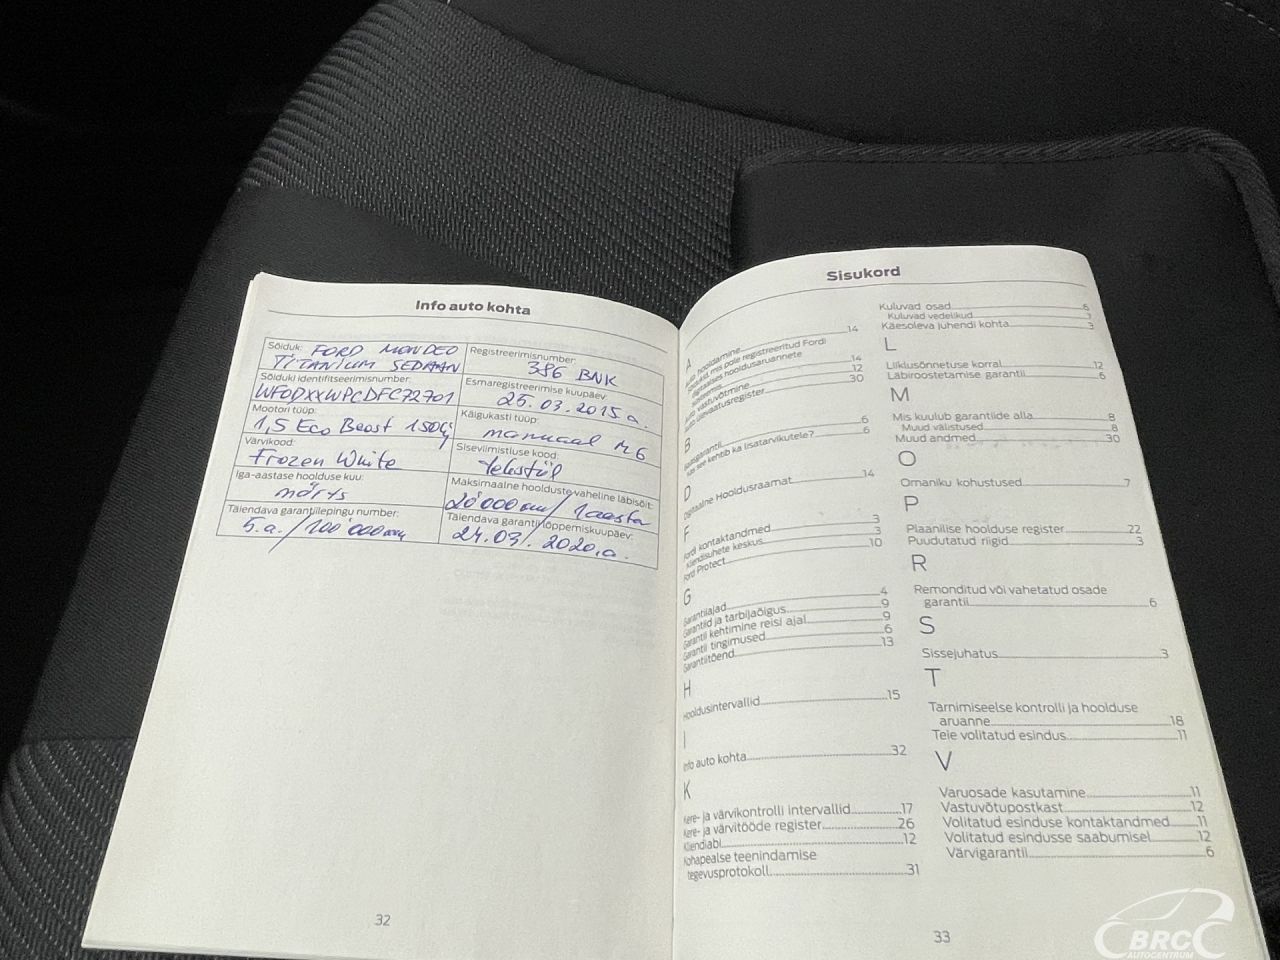 Info auto kohta
Sõiduk: FORD MONDEO
TITANIUM SEDAAN
Registreerimisnumber:
386 BNK
Sõiduki identifitseerimisnumber:
WF0DXXWPCDFC72701
Esmaregistreerimise kuupäev:
25.03.2015.a.
Mootori tüüp:
1,5 Eco Boost 150hj
Käigukasti tüüp:
manuaal M6
Värvikood:
Frozen White
Siseviimistluse kood:
tekstiil
Iga-aastase hoolduse kuu:
märts
Maksimaalne hooldustevaheline läbisõit:
20'000 km / 1 aasta
Täiendava garantiilepingu number:
5.a. / 100'000 km
Täiendava garantii lõppemiskuupäev:
24.03. 2020.a.
32
Sisukord
A
Auto hooldamine 14
Sõidukid, mis pole registreeritud Fordi
digitaalses hooldusaruannete
süsteemis 14
Auto vastuvõtmine 12
Auto ülevaatusregister 30
B
Baasgarantii 6
Kas see kehtib ka lisatarvikutele? 6
D
Digitaalne Hooldusraamat 14
F
Fordi kontaktandmed 3
Kliendisuhete keskus 3
Ford Protect 10
G
Garantiiajad 4
Garantiid ja tarbijaõigus 9
Garantii kehtimine reisi ajal 9
Garantii tingimused 6
Garantiitõend 13
H
Hooldusintervallid 15
I
Info auto kohta 32
K
Kere- ja värvikontrolli intervallid 17
Kere- ja värvitööde register 26
Kliendiabi 12
Kohapealse teenindamise
tegevusprotokoll 31
Kuluvad osad 6
Kuluvad vedelikud 7
Käesoleva juhendi kohta 3
L
Liiklusõnnetuse korral 12
Läbiroostetamise garantii 6
M
Mis kuulub garantiide alla 8
Muud välistused 8
Muud andmed 30
O
Omaniku kohustused 7
P
Plaanilise hoolduse register 22
Puudutatud riigid 3
R
Remonditud või vahetatud osade
garantii 6
S
Sissejuhatus 3
T
Tarnimiseelse kontrolli ja hoolduse
aruanne 18
Teie volitatud esindus 11
V
Varuosade kasutamine 11
Vastuvõtupostkast 12
Volitatud esinduse kontaktandmed 11
Volitatud esindusse saabumisel 12
Värvigarantii 6
33
BRC
AUTOCENTRUM